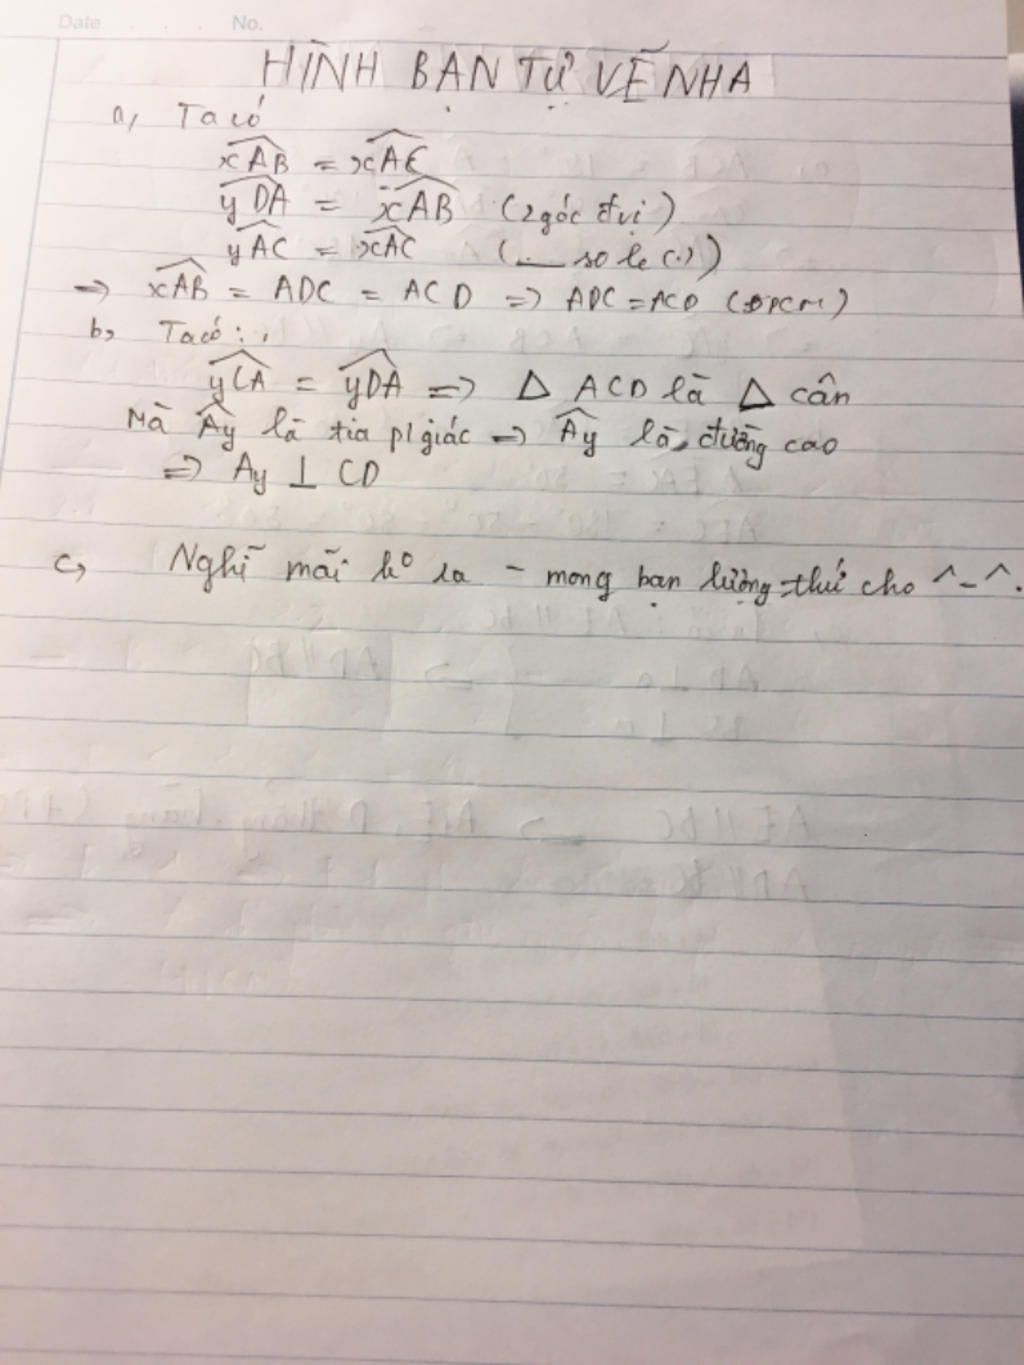 Date No.
HÌNH BẠN TỰ VẼ NHA
a, Ta có
xAB = xAC
yDA = xAB (2 góc đvị)
yAC = xAC ( so le (.))
=> xAB = ADC = ACD => ADC = ACD (ĐPCM)
b, Ta có :
yCA = yDA => Δ ACD là Δ cân
Mà Ay là tia p/giác => Ay là đường cao
=> Ay ⊥ CD
c, Nghĩ mãi k° ra - mong bạn lượng thứ cho ^-^.